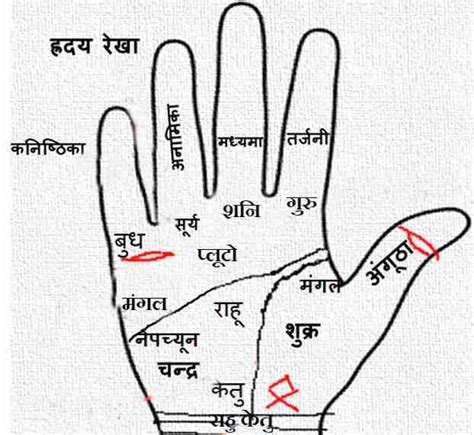 ह्रदय रेखा
कनिष्ठिका
अनामिका
मध्यमा
तर्जनी
सूर्य
शनि
गुरु
बुध
प्लूटो
अंगूठा
मंगल
मंगल
राहू
नेपच्यून
शुक्र
चन्द्र
केतु
राहु केतु